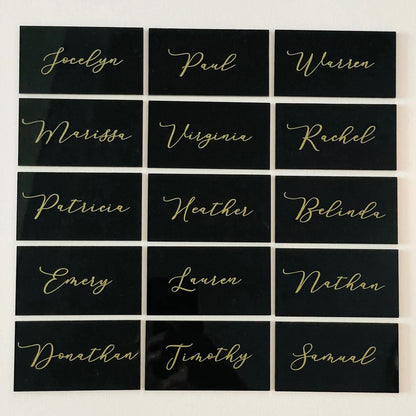 Jocelyn Paul Warren
Marissa Virginia Rachel
Patricia Heather Belinda
Emery Lauren Nathan
Donathan Timothy Samual